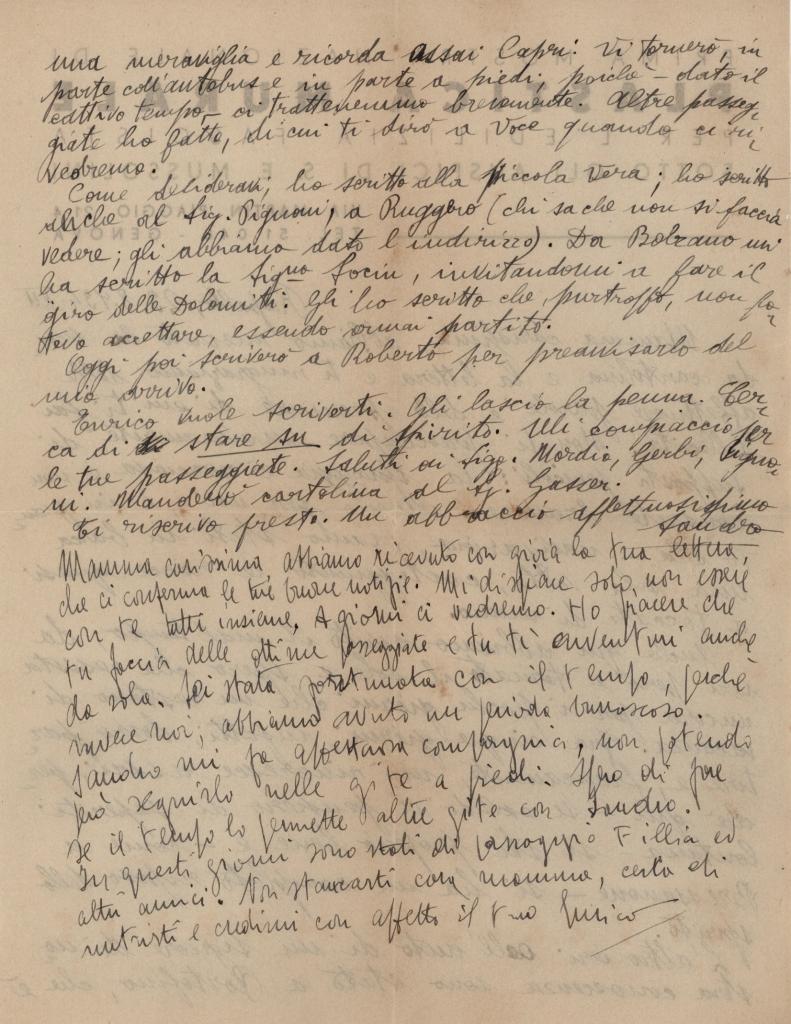 una meraviglia e ricorda assai Capri. Vi tornerò, in
parte coll'autobus e in parte a piedi, poichè – dato il
cattivo tempo, – ci trattenemmo brevemente. Altre passeg-
giate ho fatto, di cui ti dirò a voce quando ci ri-
vedremo.
Come desideravi, ho scritto alla piccola Vera; ho scritto
anche al Sig. Pignoni, a Ruggero (chi sa che non si faccia
vedere; gli abbiamo dato l'indirizzo). Da Bolzano mi
ha scritto la Sig.na Socin, invitandomi a fare il
giro delle Dolomiti. Gli ho scritto che, purtroppo, non po-
tevo accettare, essendo ormai partito.
Oggi poi scriverò a Roberto per preavvisarlo del
mio arrivo.
Enrico vuole scriverti. Gli lascio la penna. Cer-
ca di stare su di spirito. Mi compiaccio per
le tue passeggiate. Saluti ai Sigg. Mordio, Gerbi, Pigno-
ni. Manderò cartolina al Gasser.
Ti riscrivo presto. Un abbraccio affettuosissimo
Sandro
Mamma carissima abbiamo ricevuto con gioia la tua lettera,
che ci conferma le tue buone notizie. Mi dispiace solo non essere
con te tutti insieme. A giorni ci vedremo. Ho piacere che
tu faccia delle ottime passeggiate e tu ti avventuri anche
da sola. Sei stata fortunata con il tempo, perchè
invece noi, abbiamo avuto un periodo burrascoso.
Sandro mi fa affettuosa compagnia, non potendo
però seguirlo nelle gite a piedi. Spero di fare
se il tempo lo permette altre gite con Sandro.
In questi giorni sono stati di passaggio Fillia ed
altri amici. Non stancarti cara mamma, cerca di
nutristi e credimi con affetto il tuo Enrico